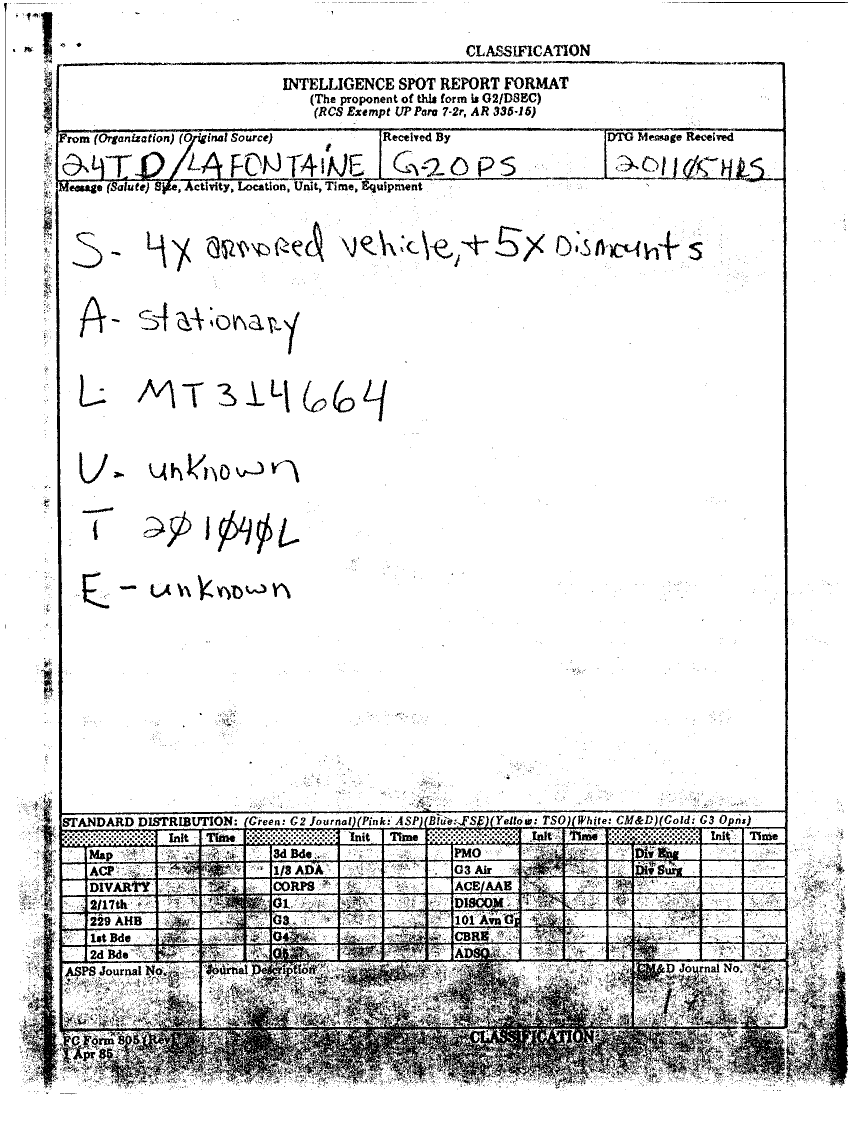 CLASSIFICATION
INTELLIGENCE SPOT REPORT FORMAT
(The proponent of this form is G2/DSEC)
(RCS Exempt UP Para 7-2r, AR 335-15)
From (Organization) (Original Source) Received By DTG Message Received
24TD/LAFONTAINE G-2OPS 201105HRS
Message (Salute) Size, Activity, Location, Unit, Time, Equipment
S- 4X armored vehicle,+ 5X Dismounts
A- stationary
L- MT314664
U- unknown
T 2Ø1Ø4ØL
E - unknown
STANDARD DISTRIBUTION: (Green: G2 Journal)(Pink: ASP)(Blue: FSE)(Yellow: TSO)(White: CM&D)(Gold: G3 Opns)
Init Time Init Time Init Time Init Time
Map 3d Bde PMO Div Eng
ACP 1/3 ADA G3 Air Div Surg
DIVARTY CORPS ACE/AAE
2/17th G1 DISCOM
229 AHB G3 101 Avn Gp
1st Bde G4 CBRE
2d Bde G5 ADSO
ASPS Journal No. Journal Description CM&D Journal No.
FC Form 805 (Rev) CLASSIFICATION
1 Apr 85